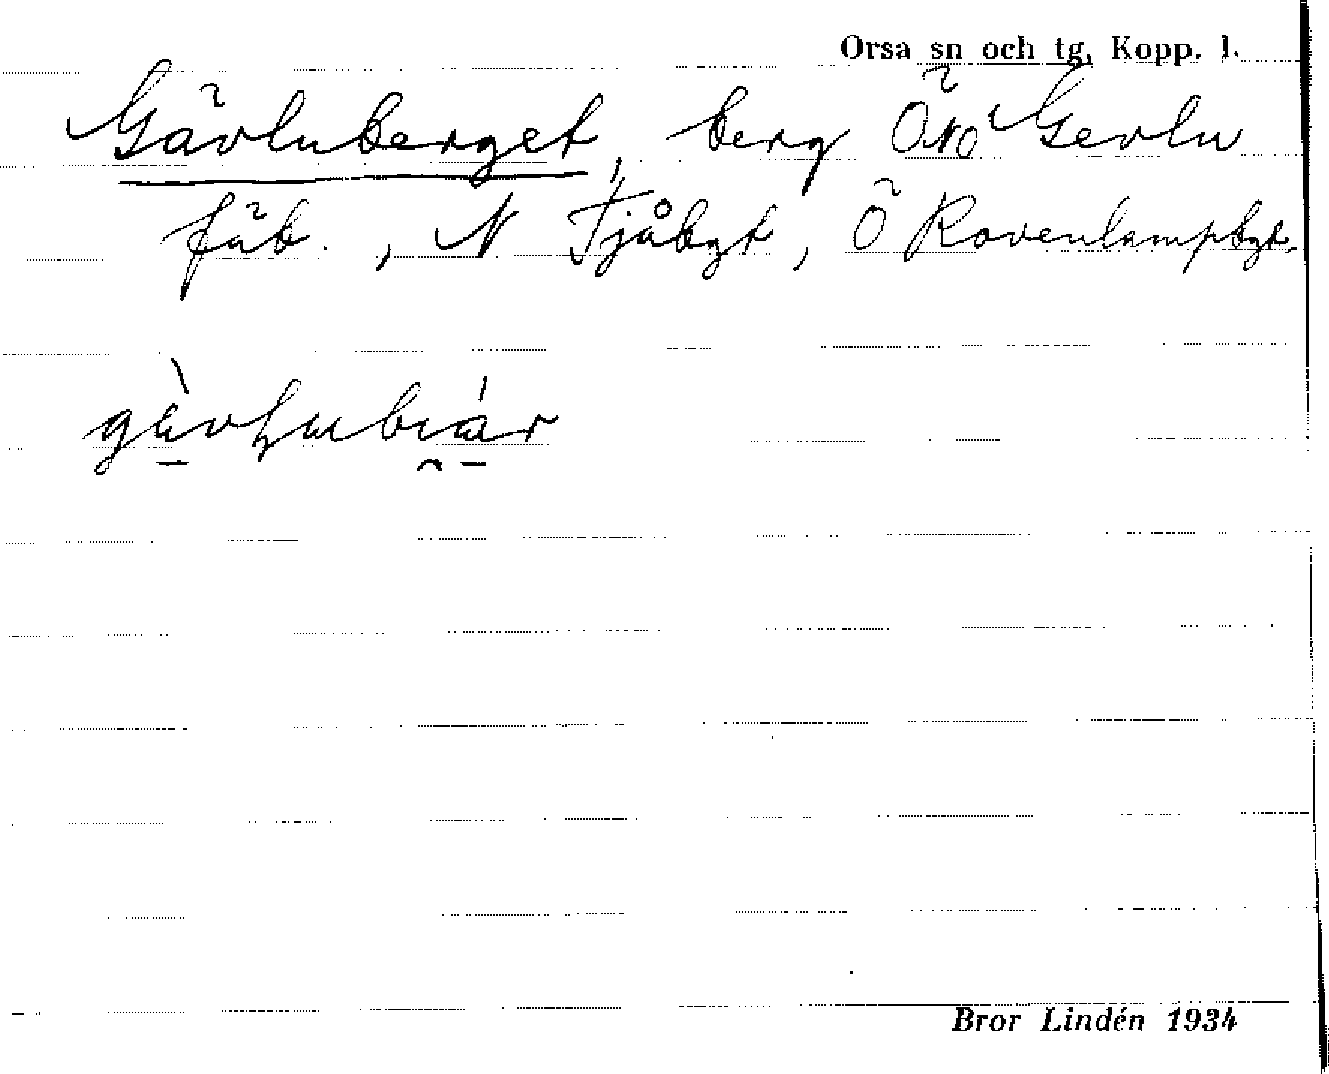 Orsa sn och tg, Kopp. l.
Gävluberget, berg ÖNÖ Gevlu
fäb., N Fjåbgt, Ö Rovenlampbgt.
Bror Lindén 1934